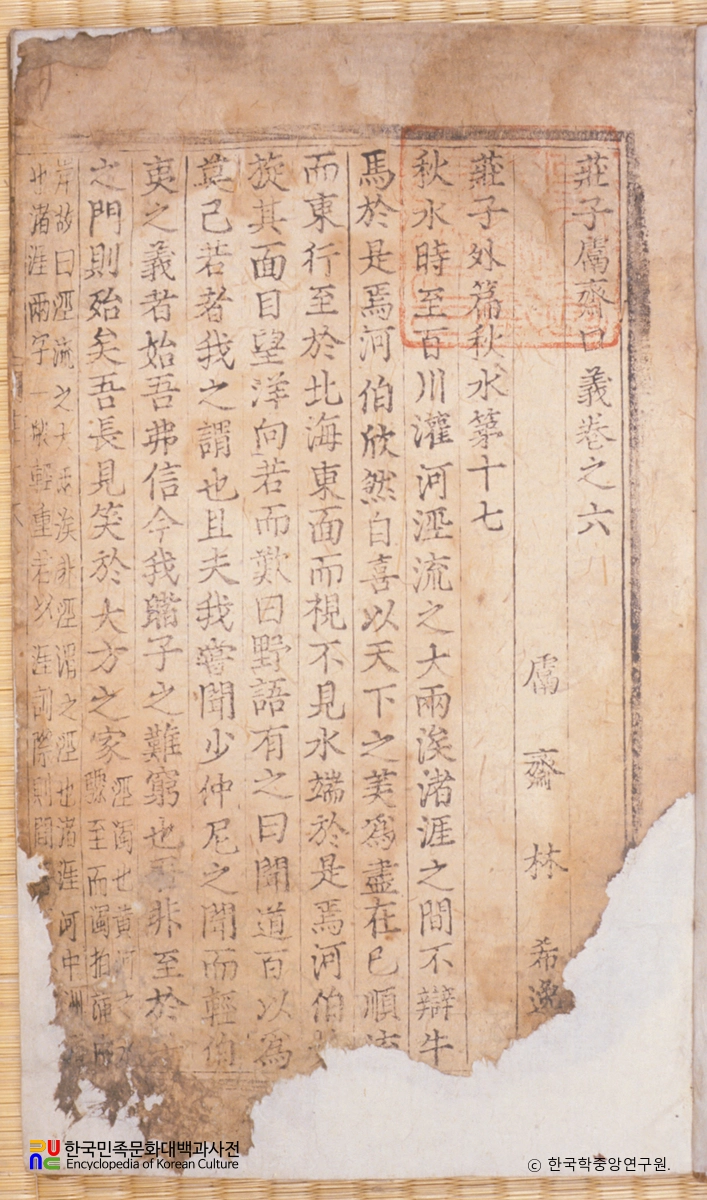 莊子鬳齋口義卷之六
鬳齋林希逸
莊子外篇秋水第十七
秋水時至百川灌河涇流之大兩涘渚涯之間不辯牛
馬於是焉河伯欣然自喜以天下之美爲盡在已順流
而東行至於北海東面而視不見水端於是焉河伯
旋其面目望洋向若而歎曰野語有之曰聞道百以為
莫己若者我之謂也且夫我嘗聞少仲尼之聞而輕伯
夷之義者始吾弗信今我睹子之難窮也吾非至於
之門則殆矣吾長見笑於大方之家
涇濁也黃河之水
驟至而濁
岸故曰涇流之大兩涘非涇渭之涇也渚涯河中洲
渚涯兩字一般輕重若以涯訓際則
한국민족문화대백과사전
Encyclopedia of Korean Culture
© 한국학중앙연구원.